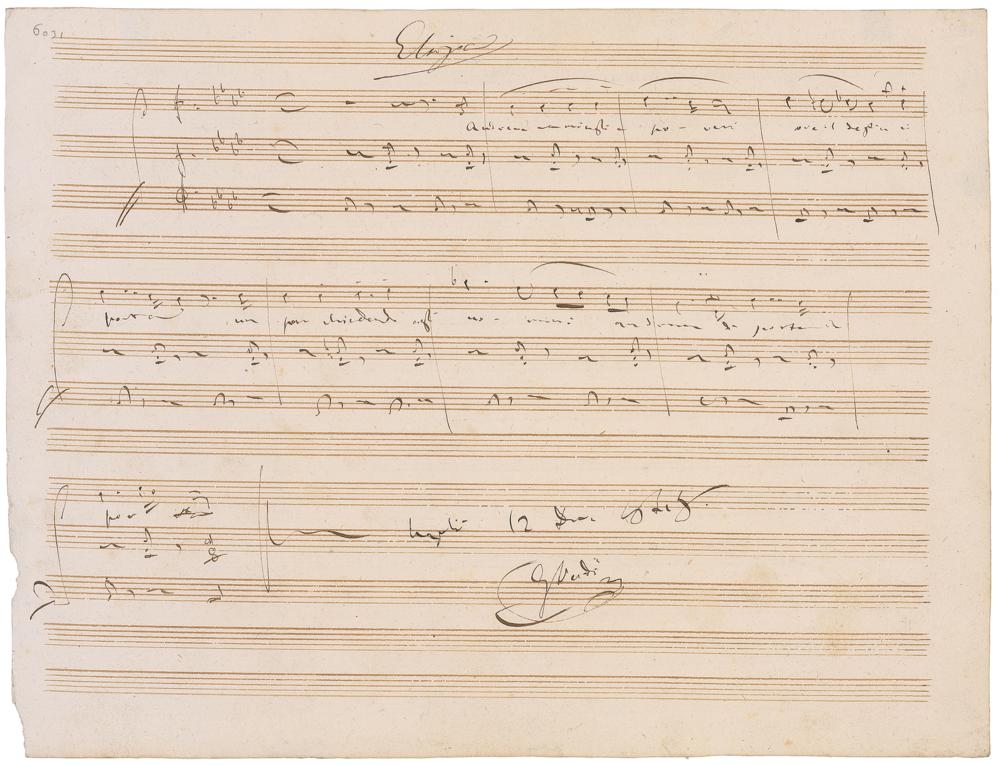 Andrem raminghi e po - veri ove il destin ci
porta un pan chiedendo agli uo - mini andrem di porta in
Napoli 12
G Verdi